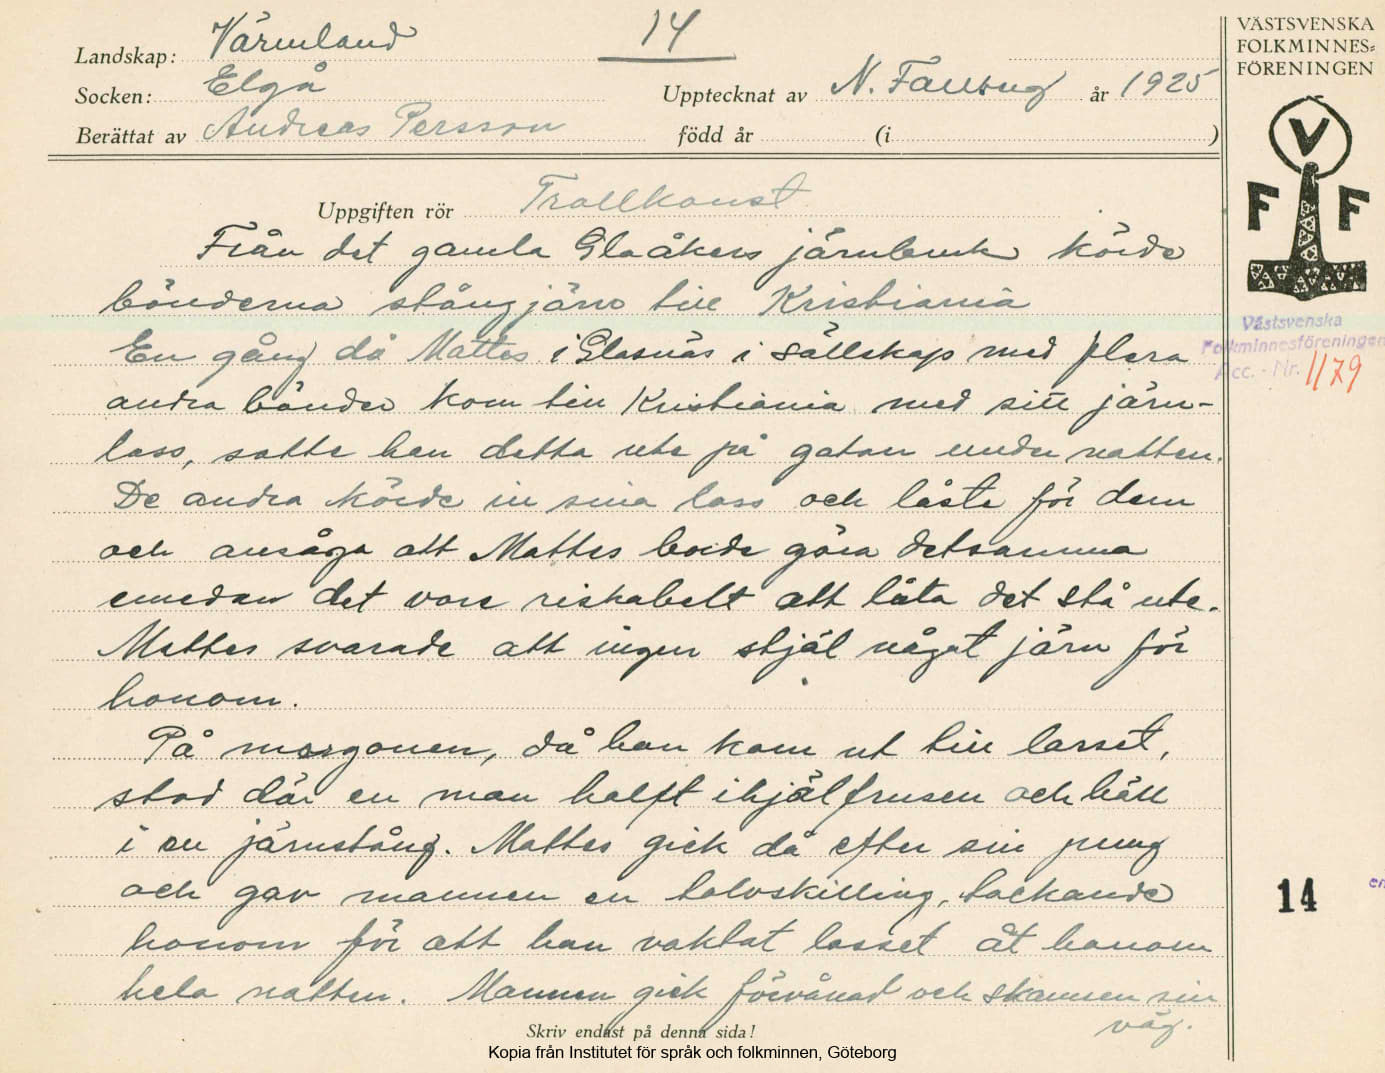 14
Landskap: Värmland
Socken: Elgå
Upptecknat av N. år 1925
Berättat av Andreas Persson
född år (i )
Uppgiften rör Trollkonst
Från det gamla Glaåkers järnbruk körde
bönderna stångjärn till Kristiania
En gång då Mattes i Glasnäs i sällskap med flera
andra bönder kom till Kristiania med sitt järn-
lass, satte han detta ute på gatan under natten.
De andra körde in sina lass och låste för dem
och ansåga att Mattes borde göra detsamma
emedan det vore riskabelt att låta det stå ute.
Mattes svarade att ingen stjäl något järn för
honom.
På morgonen, då han kom ut till lasset,
stod där en man halft ihjälfrusen och höll
i en järnstång. Mattes gick då efter sin pung
och gav mannen en tolvskilling, tackande
honom för att han vaktat lasset åt honom
hela natten. Mannen gick förvånad och skamsen sin
väg.
Skriv endast på denna sida!
Kopia från Institutet för språk och folkminnen, Göteborg
VÄSTSVENSKA
FOLKMINNES=
FÖRENINGEN
V
F F
Västsvenska
Folkminnesföreningen
Acc. - Nr. 1179
14